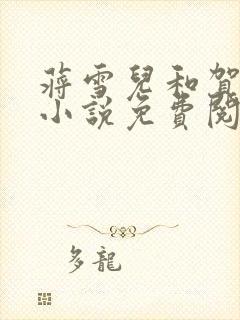 蔣雪兒和賀
小說免費閱
多龍